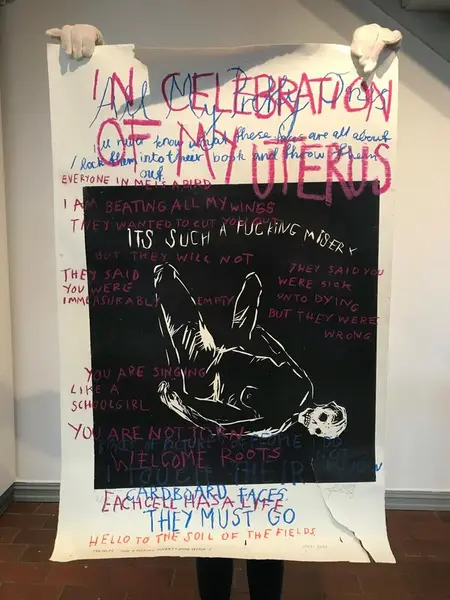 IN CELEBRATION
All My Pretty Ones
OF MY
UTERUS
I'll never know what these faces are all about
I lock them into their book and throw them
out
EVERYONE IN ME IS A BIRD
I AM BEATING ALL MY WINGS
THEY WANTED TO CUT YOU OUT
ITS SUCH A FUCKING MISERY
BUT THEY WILL NOT
THEY SAID
YOU WERE
IMMEASURABLY EMPTY
THEY SAID YOU
WERE SICK
UNTO DYING
BUT THEY WERE
WRONG
YOU ARE SINGING
LIKE A
SCHOOLGIRL
YOU ARE NOT TORN
OF PEOPLE
WELCOME ROOTS
I TOUCH THEIR
CARDBOARD FACES
EACH CELL HAS A LIFE
THEY MUST GO
HELLO TO THE SOIL OF THE FIELDS